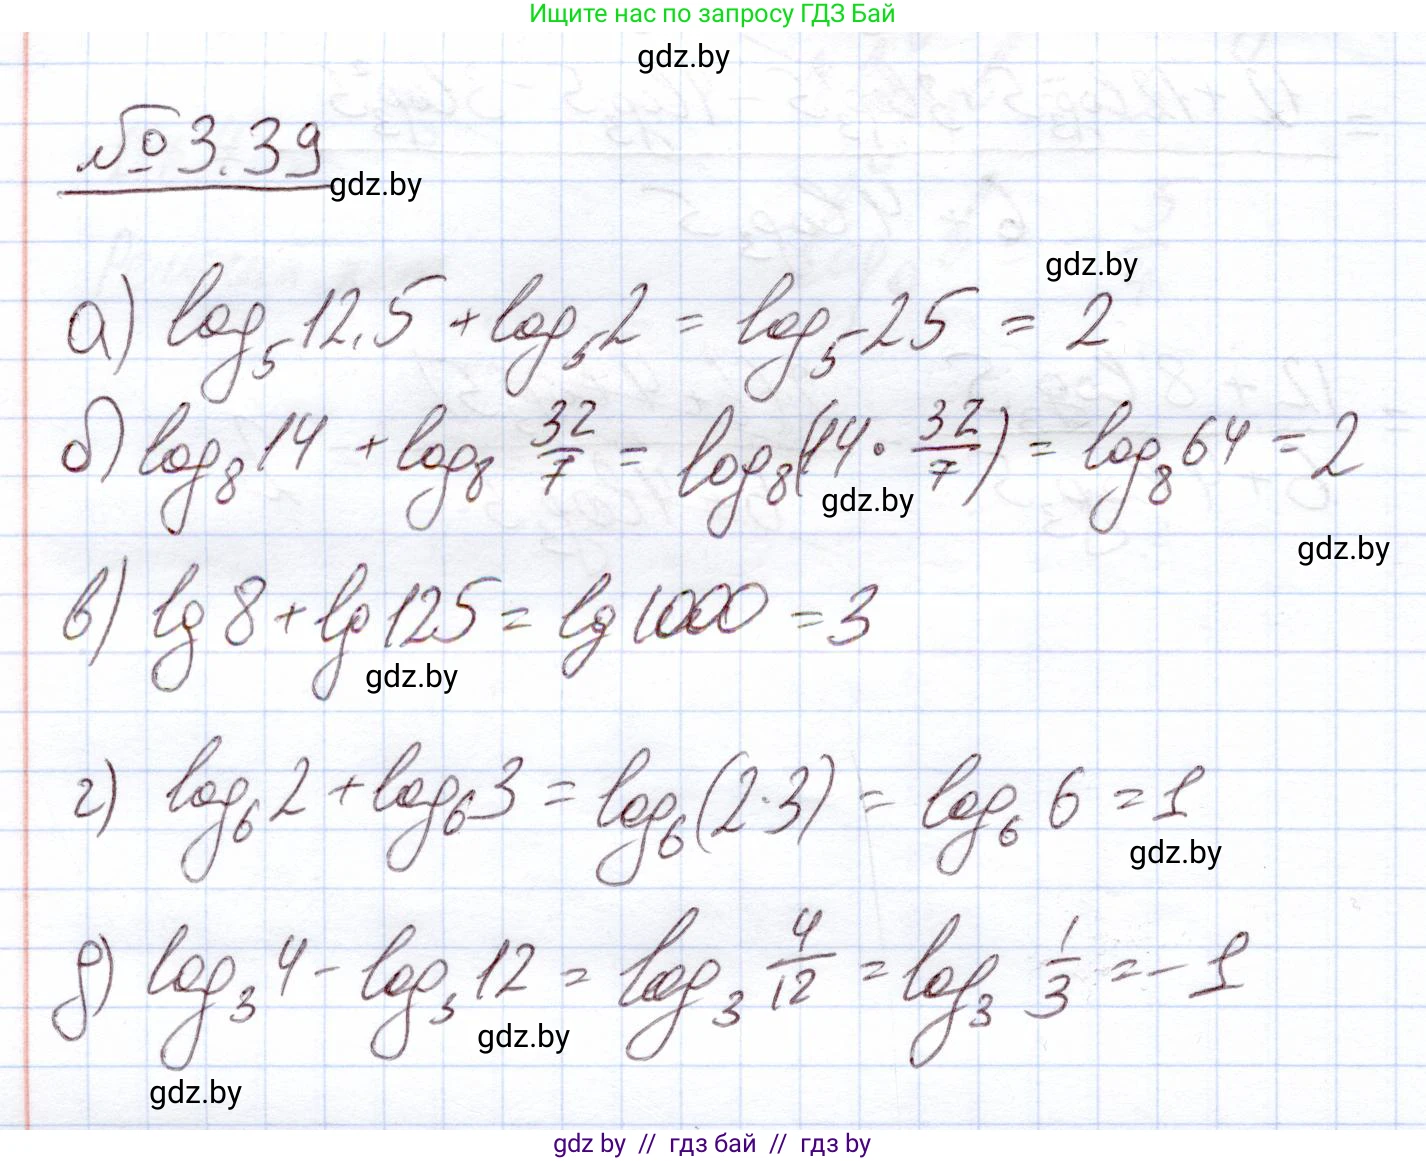 Ищите нас по запросу ГДЗ Бай
gdz.by
№ 3.39
gdz.by
gdz.by
а) log₅ 12,5 + log₅ 2 = log₅ 25 = 2
б) log₈ 14 + log₈ 32/7 = log₈ (14 · 32/7) = log₈ 64 = 2
gdz.by
gdz.by
в) lg 8 + lg 125 = lg 1000 = 3
gdz.by
г) log₆ 2 + log₆ 3 = log₆ (2·3) = log₆ 6 = 1
gdz.by
д) log₃ 4 - log₃ 12 = log₃ 4/12 = log₃ 1/3 = -1
gdz.by
gdz.by
gdz by // гдз бай // гдз by